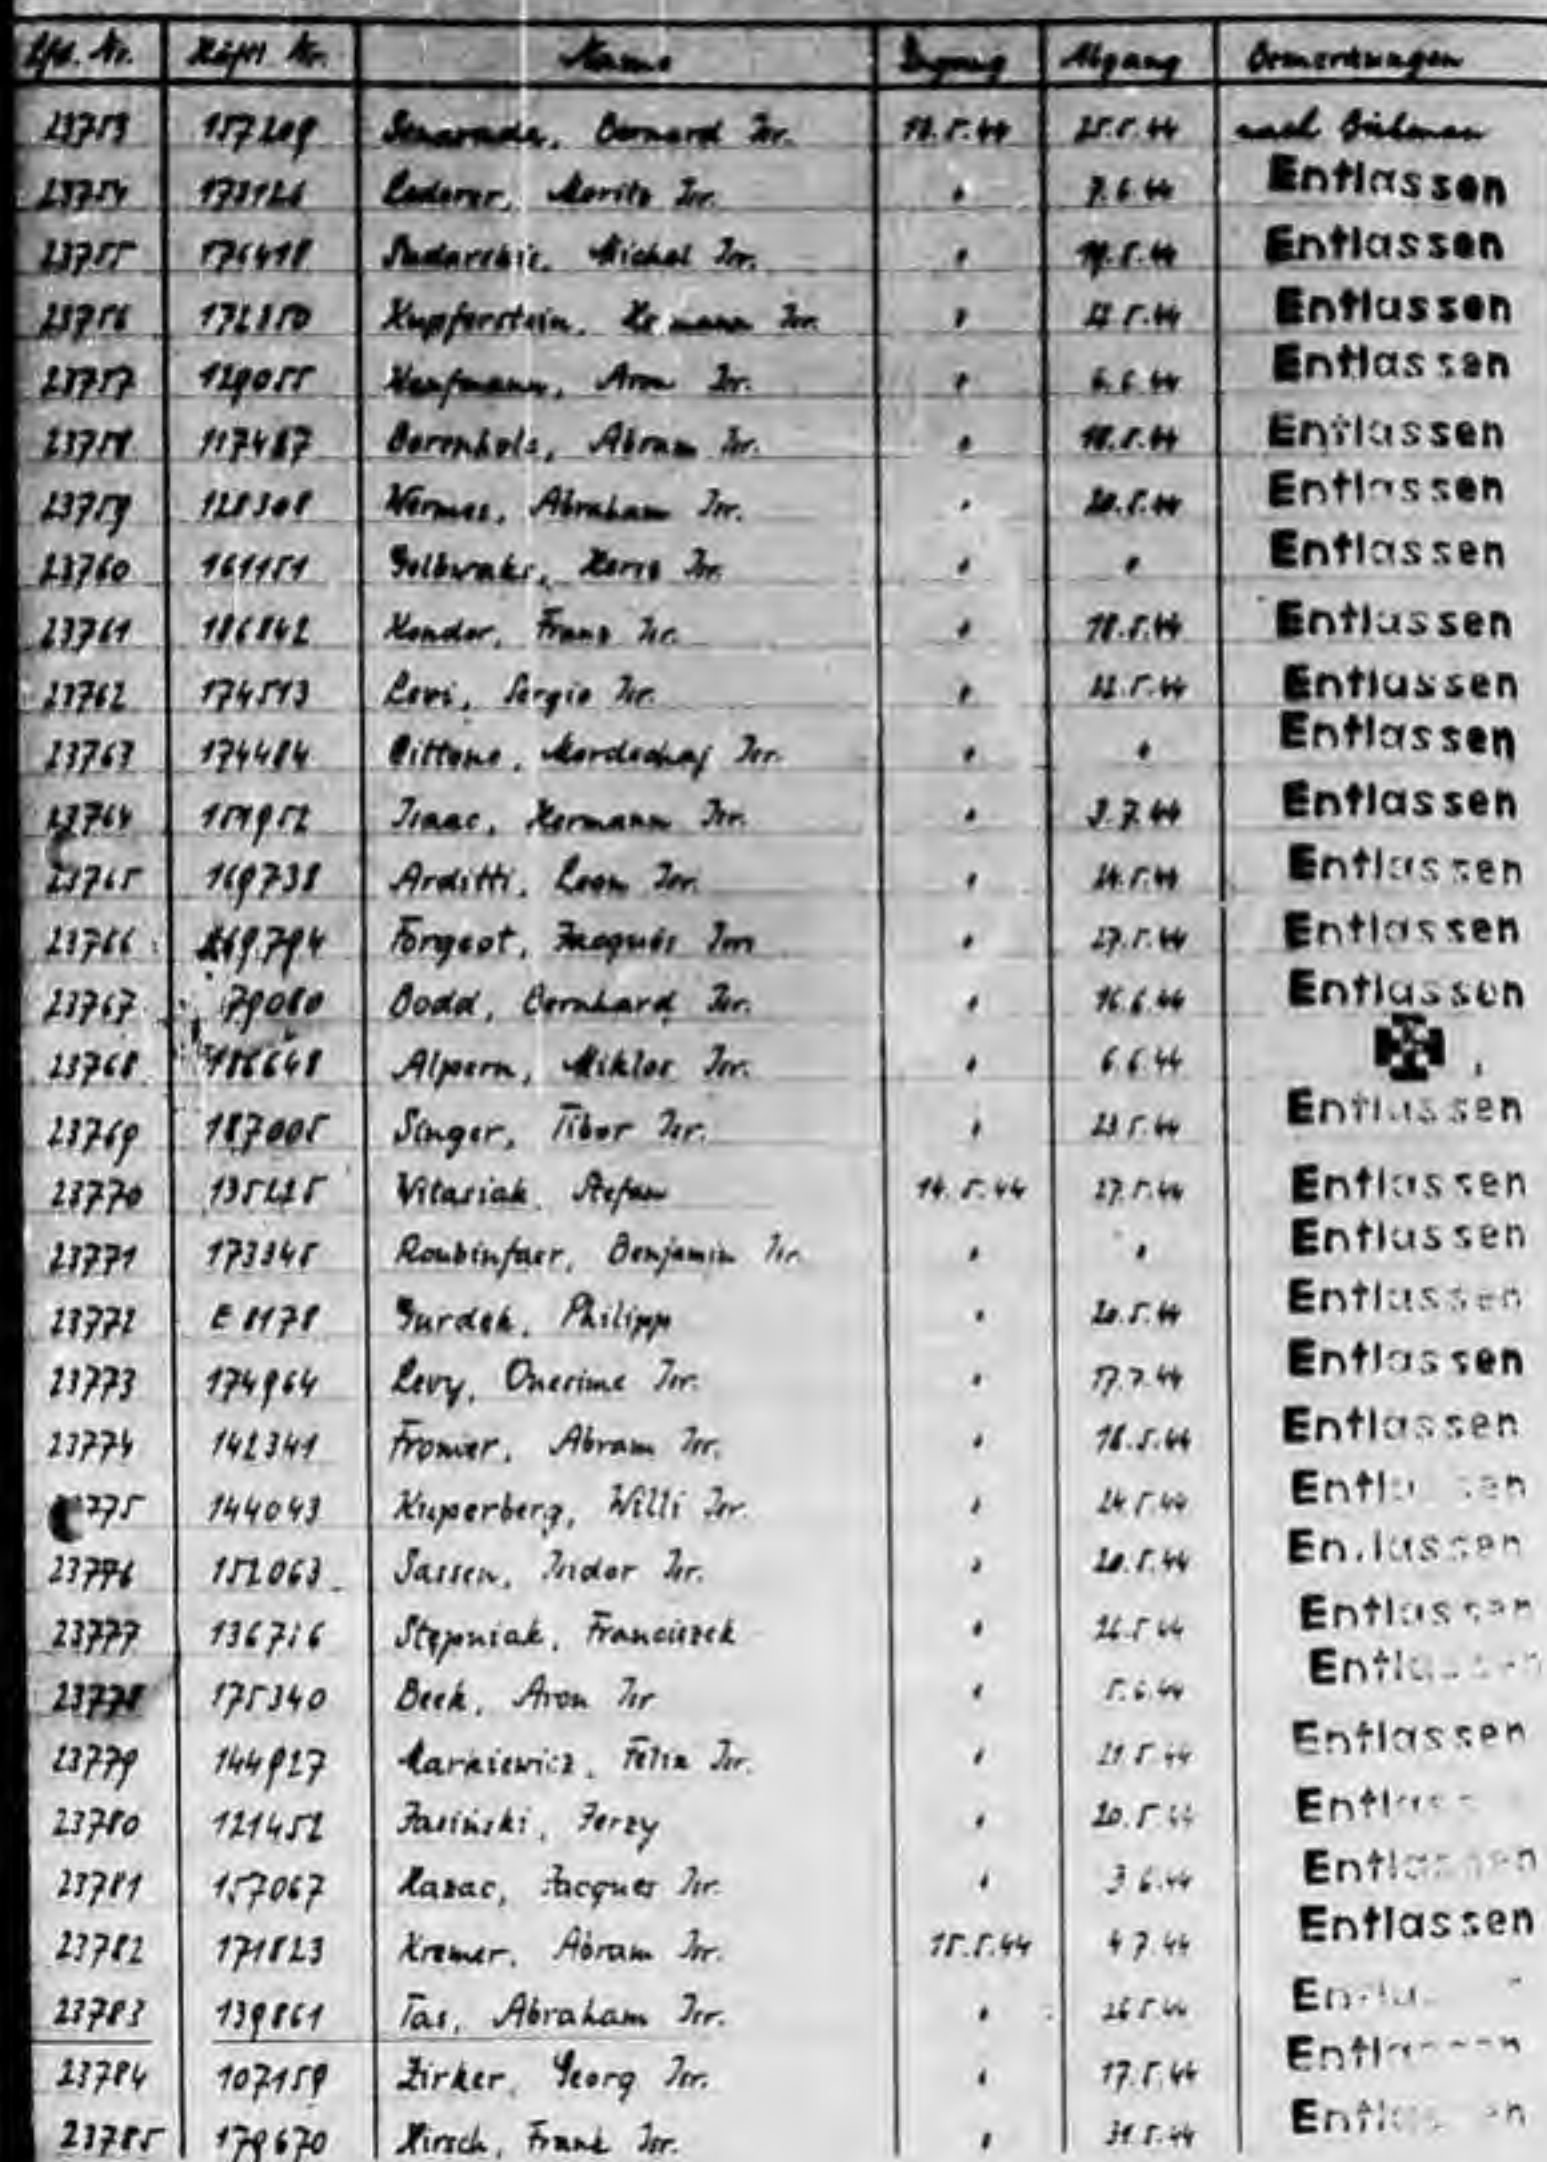 Lfd. Nr. Häftl. Nr. Name Zugang Abgang Bemerkungen
23753 157209 Bernard Isr. 25.5.44 nach
23754 Lederer, Moritz Isr. " 7.6.44 Entlassen
23755 176418 Michel Isr. " Entlassen
23756 172350 Kupferstein, Isr. " 22.5.44 Entlassen
23757 129055 Kaufmann, Aron Isr. " 6.6.44 Entlassen
23758 117487 Bornholz, Abram Isr. " 18.5.44 Entlassen
23759 128308 Wermus, Abraham Isr. " 20.5.44 Entlassen
23760 161151 Isr. " " Entlassen
23761 186842 Kondor, Franz Isr. " 18.5.44 Entlassen
23762 174513 Levi, Sergio Isr. " 22.5.44 Entlassen
23763 174484 Cittone, Mordechaj Isr. " " Entlassen
23764 Isaac, Hermann Isr. " 3.7.44 Entlassen
23765 169738 Arditti, Leon Isr. " 24.5.44 Entlassen
23766 169794 Forgeot, Jacques Isr. " 27.5.44 Entlassen
23767 79080 Dodd, Bernhard Isr. " 16.6.44 Entlassen
23768 186648 Alpern, Miklos Isr. " 6.6.44
23769 187005 Singer, Tibor Isr. " 23.5.44 Entlassen
23770 135225 Witasiak, Stefan 14.5.44 27.5.44 Entlassen
23771 173345 Benjamin Isr. " " Entlassen
23772 E 8178 Gurdek, Philipp " 20.5.44 Entlassen
23773 174964 Levy, Onesime Isr. " 17.7.44 Entlassen
23774 142341 Fromer, Abram Isr. " 18.5.44 Entlassen
775 144043 Kuperberg, Willi Isr. " 24.5.44 Entlassen
23776 152063 Sassen, Isidor Isr. " 20.5.44 Entlassen
23777 136716 Stępniak, Franciszek " 26.5.44 Entlassen
23778 175340 Beek, Aron Isr. " 5.6.44 Entlassen
23779 144927 Markiewicz, Felix Isr. " 21.5.44 Entlassen
23780 121452 Jasiński, Jerzy " 20.5.44 Entlassen
23781 157067 Kazac, Jacques Isr. " 3.6.44 Entlassen
23782 171823 Kremer, Abram Isr. 15.5.44 4.7.44 Entlassen
23783 139861 Tas, Abraham Isr. " 26.5.44 Entlassen
23784 107159 Zirker, Georg Isr. " 17.5.44 Entlassen
23785 179670 Hirsch, Frank Isr. " 31.5.44 Entlassen